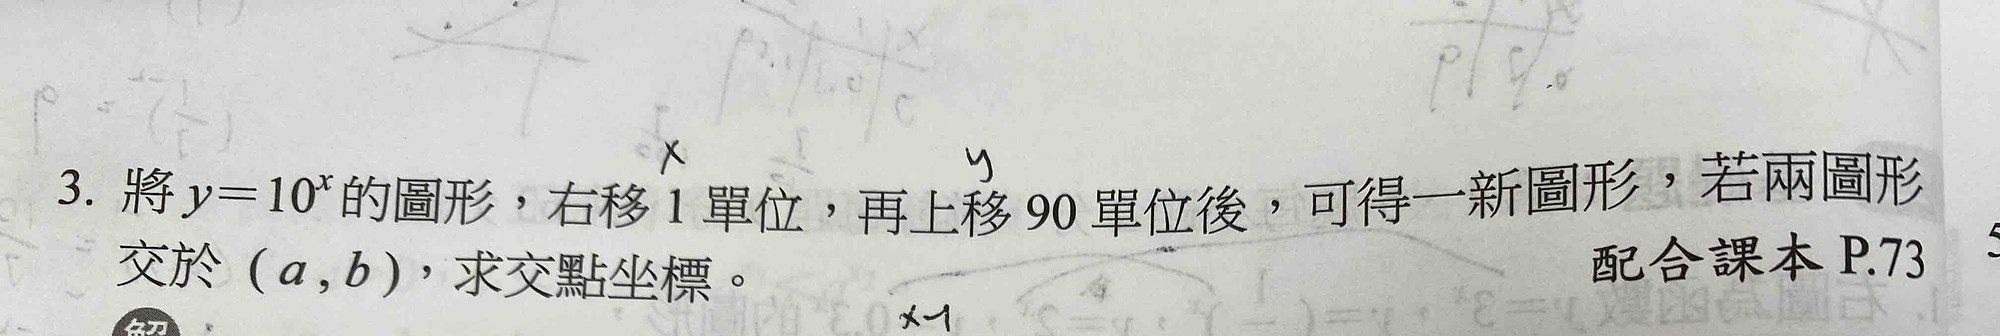 x y
3. 將 y=10ˣ 的圖形，右移 1 單位，再上移 90 單位後，可得一新圖形，若兩圖形
交於 (a, b)，求交點坐標。 配合課本 P.73
x-1
解